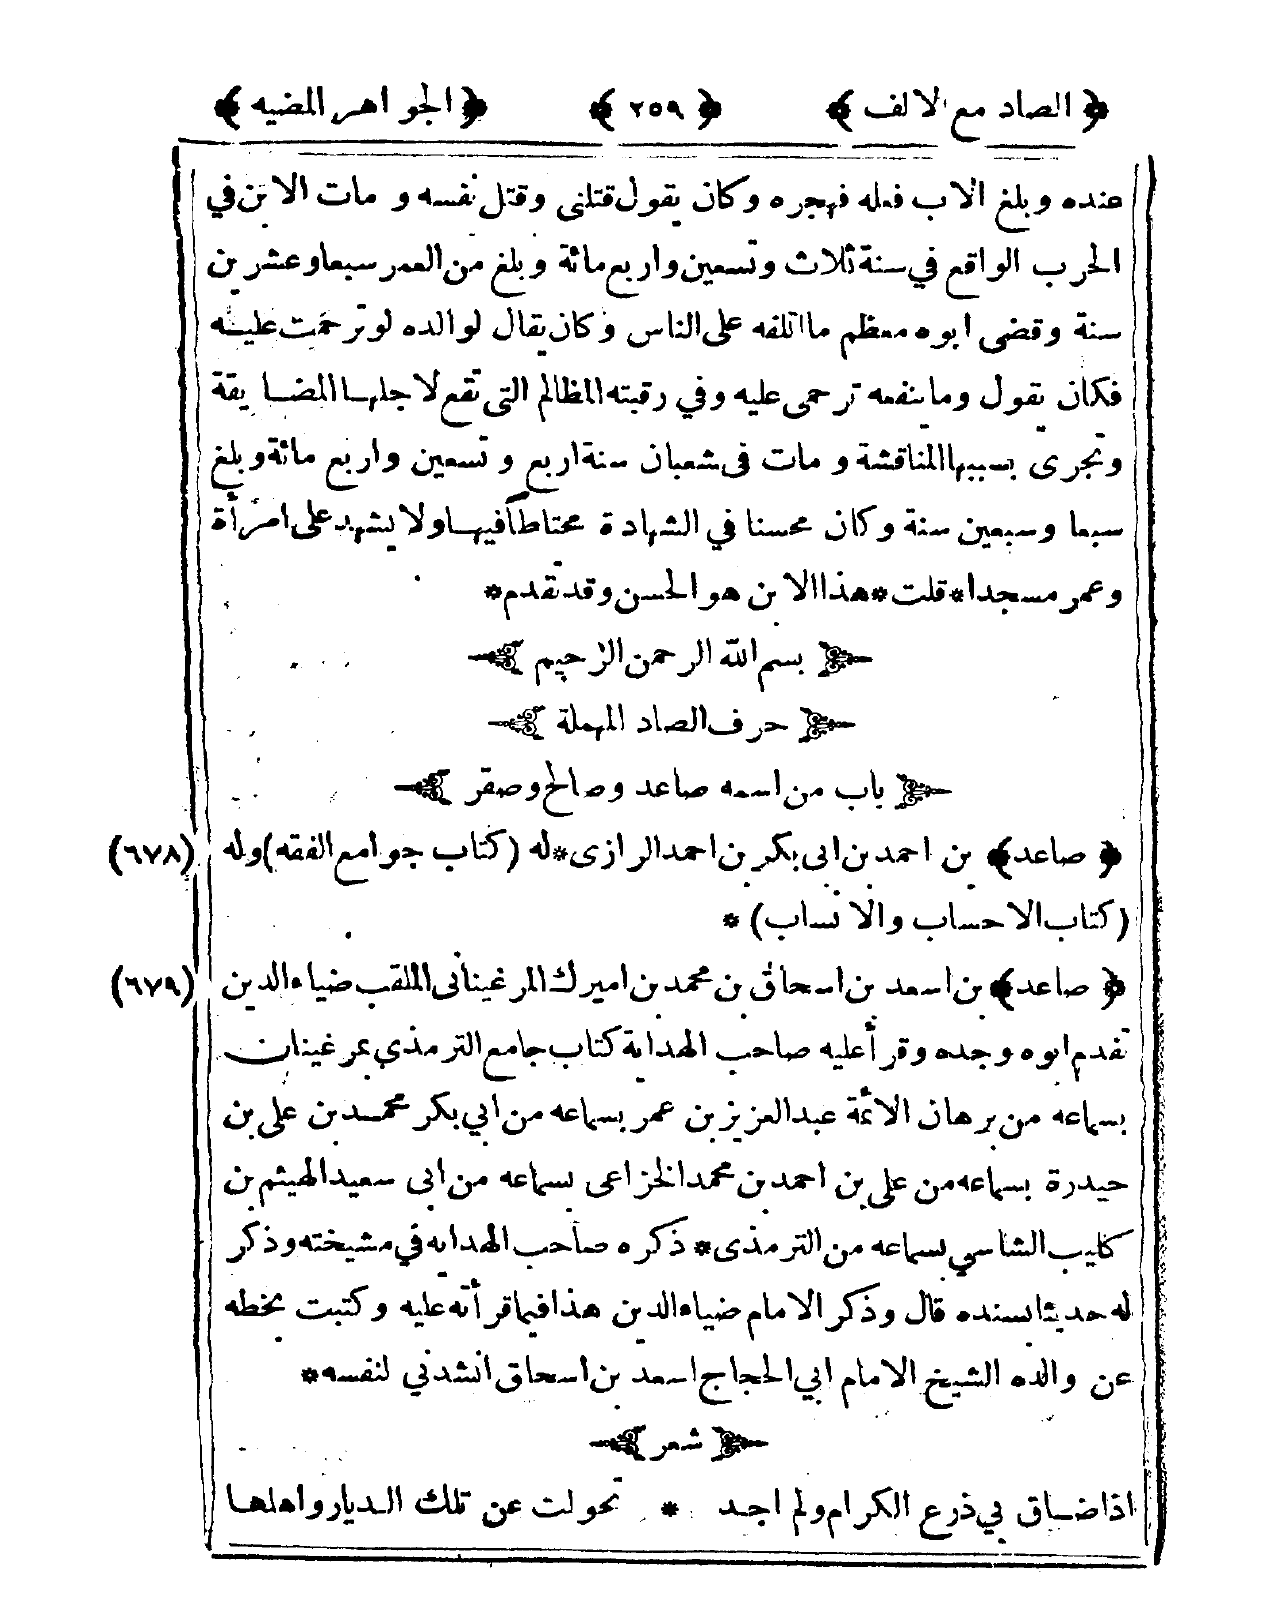 ﴿ الصاد مع الالف ﴾ ﴿ ٢٥٩ ﴾ ﴿ الجواهر المضيه ﴾
عنده وبلغ الاب فعله فهجره وكان يقول قتلنى وقتل نفسه و مات الابن في
الحرب الواقع في سنة ثلاث وتسعين واربع مائة وبلغ من العمر سبعا وعشرين
سنة وقضى ابوه معظم ما اتلفه على الناس وكان يقال لوالده لو ترحمت عليه
فكان يقول وما ينفعه ترحمى عليه وفي رقبته المظالم التى تقع لاجلها المضايقة
وتجرى بسببها المناقشة و مات فى شعبان سنة اربع و تسعين واربع مائة وبلغ
سبعا وسبعين سنة وكان محسنا في الشهادة محتاطا فيها ولا يشهد على امرأة
وعمر مسجدا * قلت * هذا الابن هو الحسن وقد تقدم *
﴿ بسم الله الرحمن الرحيم ﴾
﴿ حرف الصاد المهملة ﴾
﴿ باب من اسمه صاعد وصالح وصقر ﴾
﴿ صاعد ﴾ بن احمد بن ابى بكر بن احمد الرازى * له (كتاب جوامع الفقه) وله (٦٧٨)
(كتاب الاحساب والانساب) *
﴿ صاعد ﴾ بن اسعد بن اسحاق بن محمد بن اميرك المرغينانى الملقب ضياء الدين (٦٧٩)
تقدم ابوه وجده وقرأ عليه صاحب الهداية كتاب جامع الترمذي بمرغينان
بسماعه من برهان الائمة عبد العزيز بن عمر بسماعه من ابي بكر محمد بن علي بن
حيدرة بسماعه من علي بن احمد بن محمد الخزاعى بسماعه من ابى سعيد الهيثم بن
كليب الشاسي بسماعه من الترمذى * ذكره صاحب الهدايه في مشيخته وذكر
له حديثا بسنده قال وذكر الامام ضياء الدين هذا فيما قرأته عليه وكتبت بخطه
عن والده الشيخ الامام ابي الحجاج اسعد بن اسحاق انشدني لنفسه *
﴿ شعر ﴾
اذا ضاق بي ذرع الكرام ولم اجد * تحولت عن تلك الديار واهلها